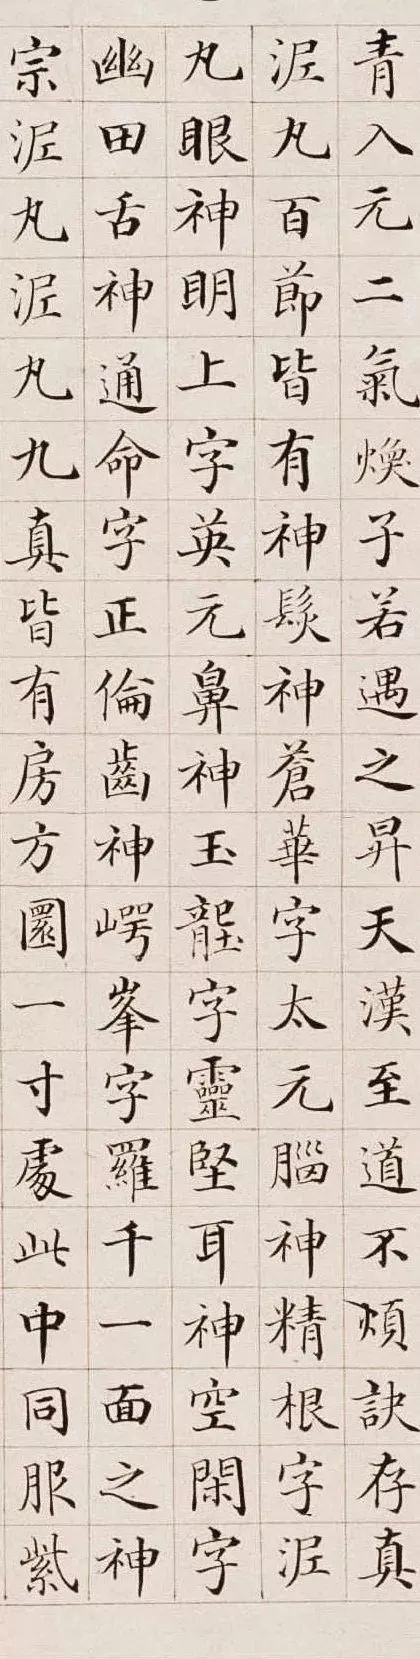 青入元二氣煥子若遇之昇天漢至道不煩訣存真
泥丸百節皆有神髮神蒼華字太元腦神精根字泥
丸眼神明上字英元鼻神玉壟字靈堅耳神空閑字
幽田舌神通命字正倫齒神崿峯字羅千一面之神
宗泥丸泥丸九真皆有房方圜一寸處此中同服紫